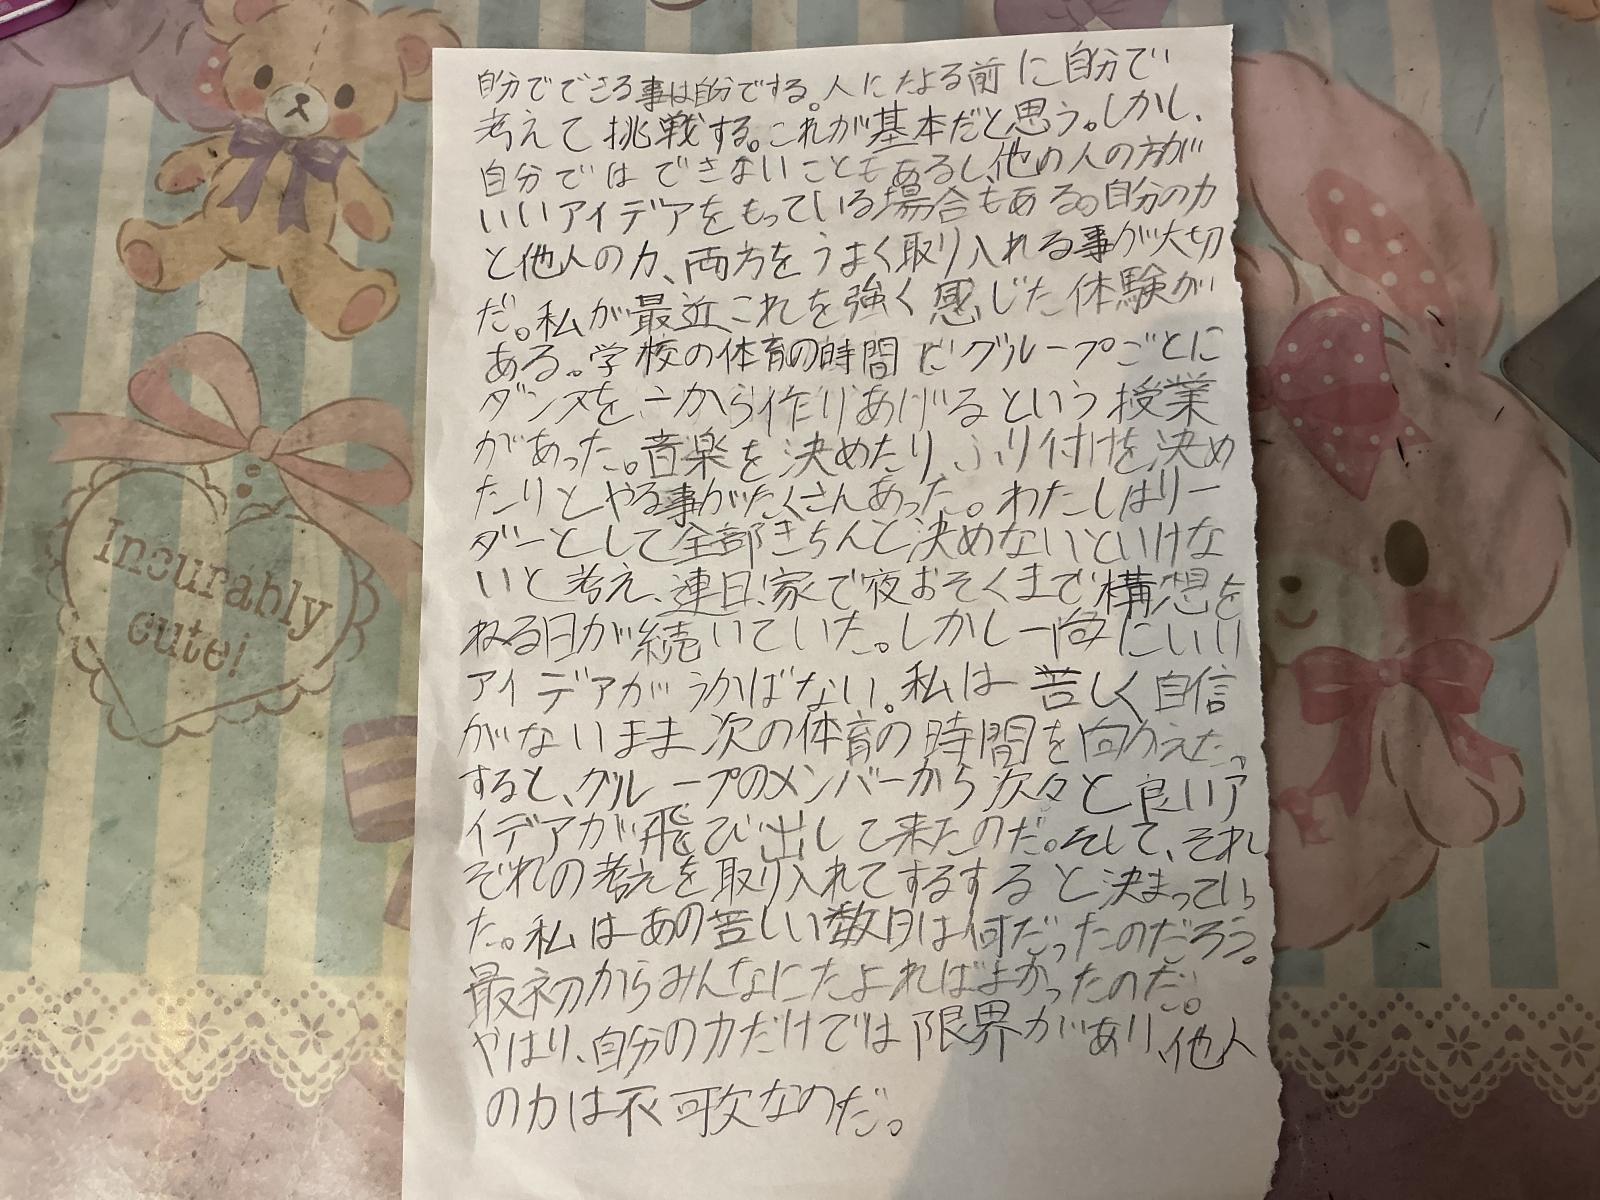 自分でできる事は自分でする。人にたよる前に自分で
考えて挑戦する。これが基本だと思う。しかし、
自分ではできないこともあるし、他の人の方が
いいアイデアをもっている場合もある。自分の力
と他人の力、両方をうまく取り入れる事が大切
だ。私が最近これを強く感じた体験が
ある。学校の体育の時間でグループごとに
ダンスを一から作りあげるという授業
があった。音楽を決めたり、ふり付けを決め
たりとやる事がたくさんあった。わたしはリー
ダーとして全部きちんと決めないといけな
いと考え、連日、家で夜おそくまで構想を
ねる日が続いていた。しかし一向にいい
アイデアがうかばない。私は苦しく自信
がないまま次の体育の時間を向かえた。
すると、グループのメンバーから次々と良いア
イデアが飛び出して来たのだ。そして、それ
ぞれの考えを取り入れてするすると決まってい
た。私はあの苦しい数日は何だったのだろう。
最初からみんなにたよればよかったのだ。
やはり、自分の力だけでは限界があり、他人
の力は不可欠なのだ。
Incurably
cute!